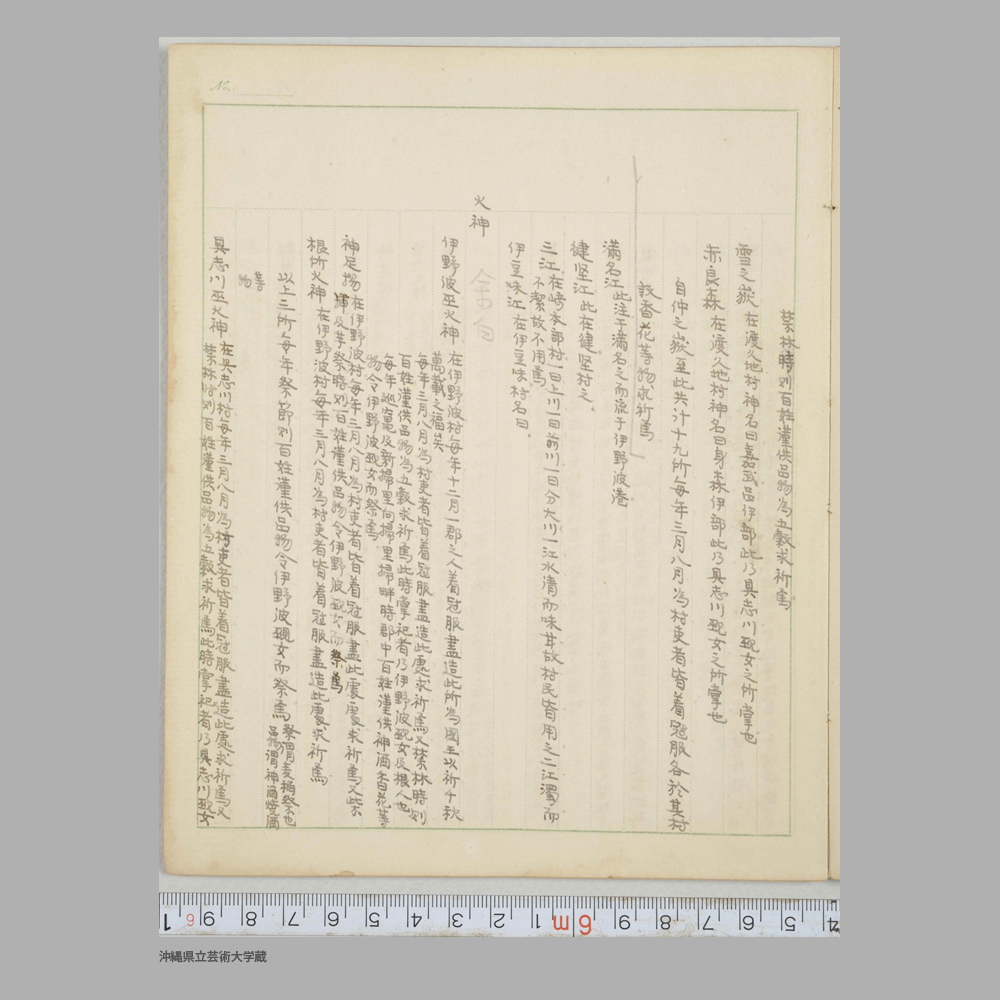 禁林時則百姓謹供品物為五穀求祈焉
雪之嶽 在渡久地村神名曰嘉武呂伊部此乃具志川巫女之所掌也
赤良森 在渡久地村神名曰身森伊部此乃具志川巫女之所掌也
自仲之嶽至此共计十九所每年三月八月為村吏者皆着冠服各於其村
設香花等物求祈焉
滿名江 此注于滿名之而流于伊野波港
健坚江 此在健坚村之。
三江 在崎本部村一曰上川一曰前川一曰分大川一江水清而味甘故村民皆用之二江濁而
不潔故不用焉
伊豆味江 在伊豆味村名曰。
火神
伊野波巫火神 在伊野波村每年十二月一郡之人着冠服盡造此所為國王以祈千秋
萬載之福矣
每年三月八月為村吏者皆着冠服盡造此處求祈焉又禁林時則
百姓謹供品物為五穀求祈焉此時掌祀者乃伊野波巫女及根人也
每年巡竈及新掃里向掃里掃畔時郡中百姓謹供神酒香花等
物令伊野波巫女而祭焉
神足揚 在伊野波村每年三月八月為村吏者皆着冠服盡此處求祈焉又柴
揮及芋祭時則百姓謹供品物令伊野波巫女而祭焉
根所火神 在伊野波村每年三月八月為村吏者皆着冠服盡造此處求祈焉
以上三所每年祭節則百姓謹供品物令伊野波巫女而祭焉 祭謂麦稲祭也
品物謂神酒燒酒
等
物
具志川巫火神 在具志川村每年三月八月為村吏者皆着冠服盡造此處求祈焉又
禁林時則百姓謹供品物為五穀求祈焉此時掌祀者乃具志川巫女
No.
1 6 9 8 7 6 5 4 3 2 1 6m 9 8 7 6 5 4
沖縄県立芸術大学蔵